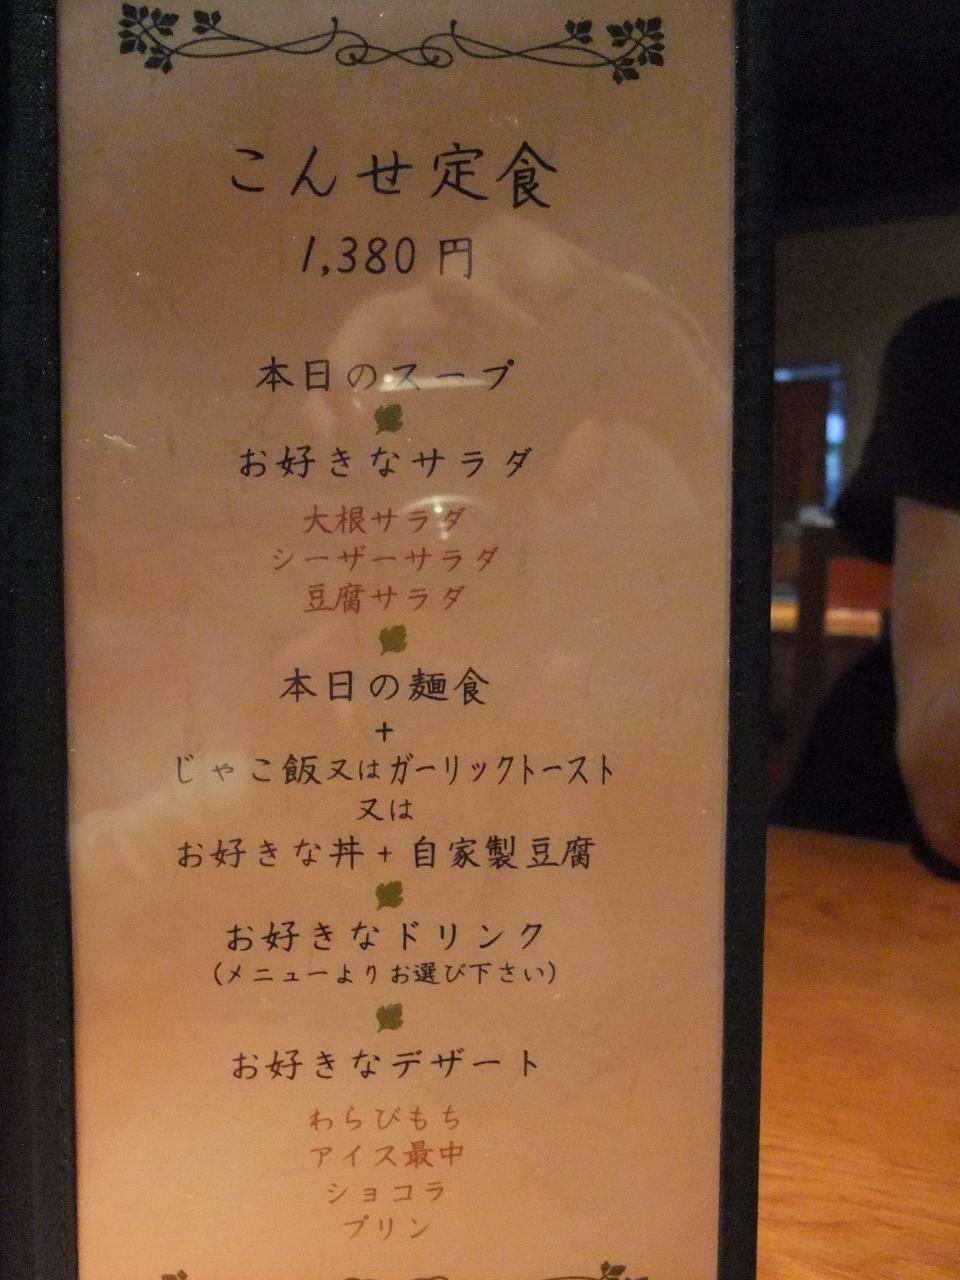 こんせ定食
1,380 円
本日のスープ
お好きなサラダ
大根サラダ
シーザーサラダ
豆腐サラダ
本日の麺食
+
じゃこ飯又はガーリックトースト
又は
お好きな丼+自家製豆腐
お好きなドリンク
(メニューよりお選び下さい)
お好きなデザート
わらびもち
アイス最中
ショコラ
プリン